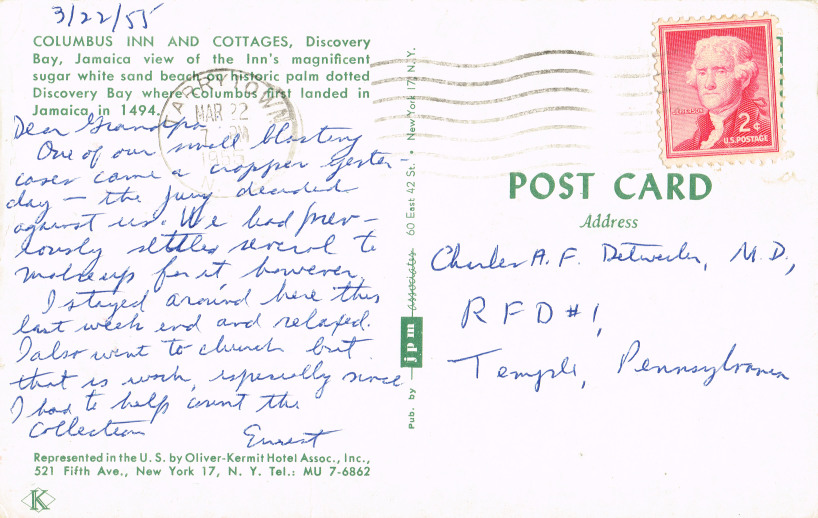 3/22/55
COLUMBUS INN AND COTTAGES, Discovery
Bay, Jamaica view of the Inn's magnificent
sugar white sand beach on historic palm dotted
Discovery Bay where Columbus first landed in
Jamaica in 1494.
TARRYTOWN
MAR 22
1955
Dear Grandpa
One of our small blasting
cases came a cropper yester-
day — the jury decided
against us. We had prev-
iously settled several to
make up for it however.
I stayed around here this
last week end and relaxed.
I also went to church but
that is work, especially since
I had to help count the
collection
Ernest
Represented in the U. S. by Oliver-Kermit Hotel Assoc., Inc.,
521 Fifth Ave., New York 17, N. Y. Tel.: MU 7-6862
K
Pub. by jpm associates 60 East 42 St. • New York 17, N. Y.
JEFFERSON
2¢
U.S. POSTAGE
POST CARD
Address
Charles A. F. Detweiler, M. D.,
R F D # 1,
Temple, Pennsylvania